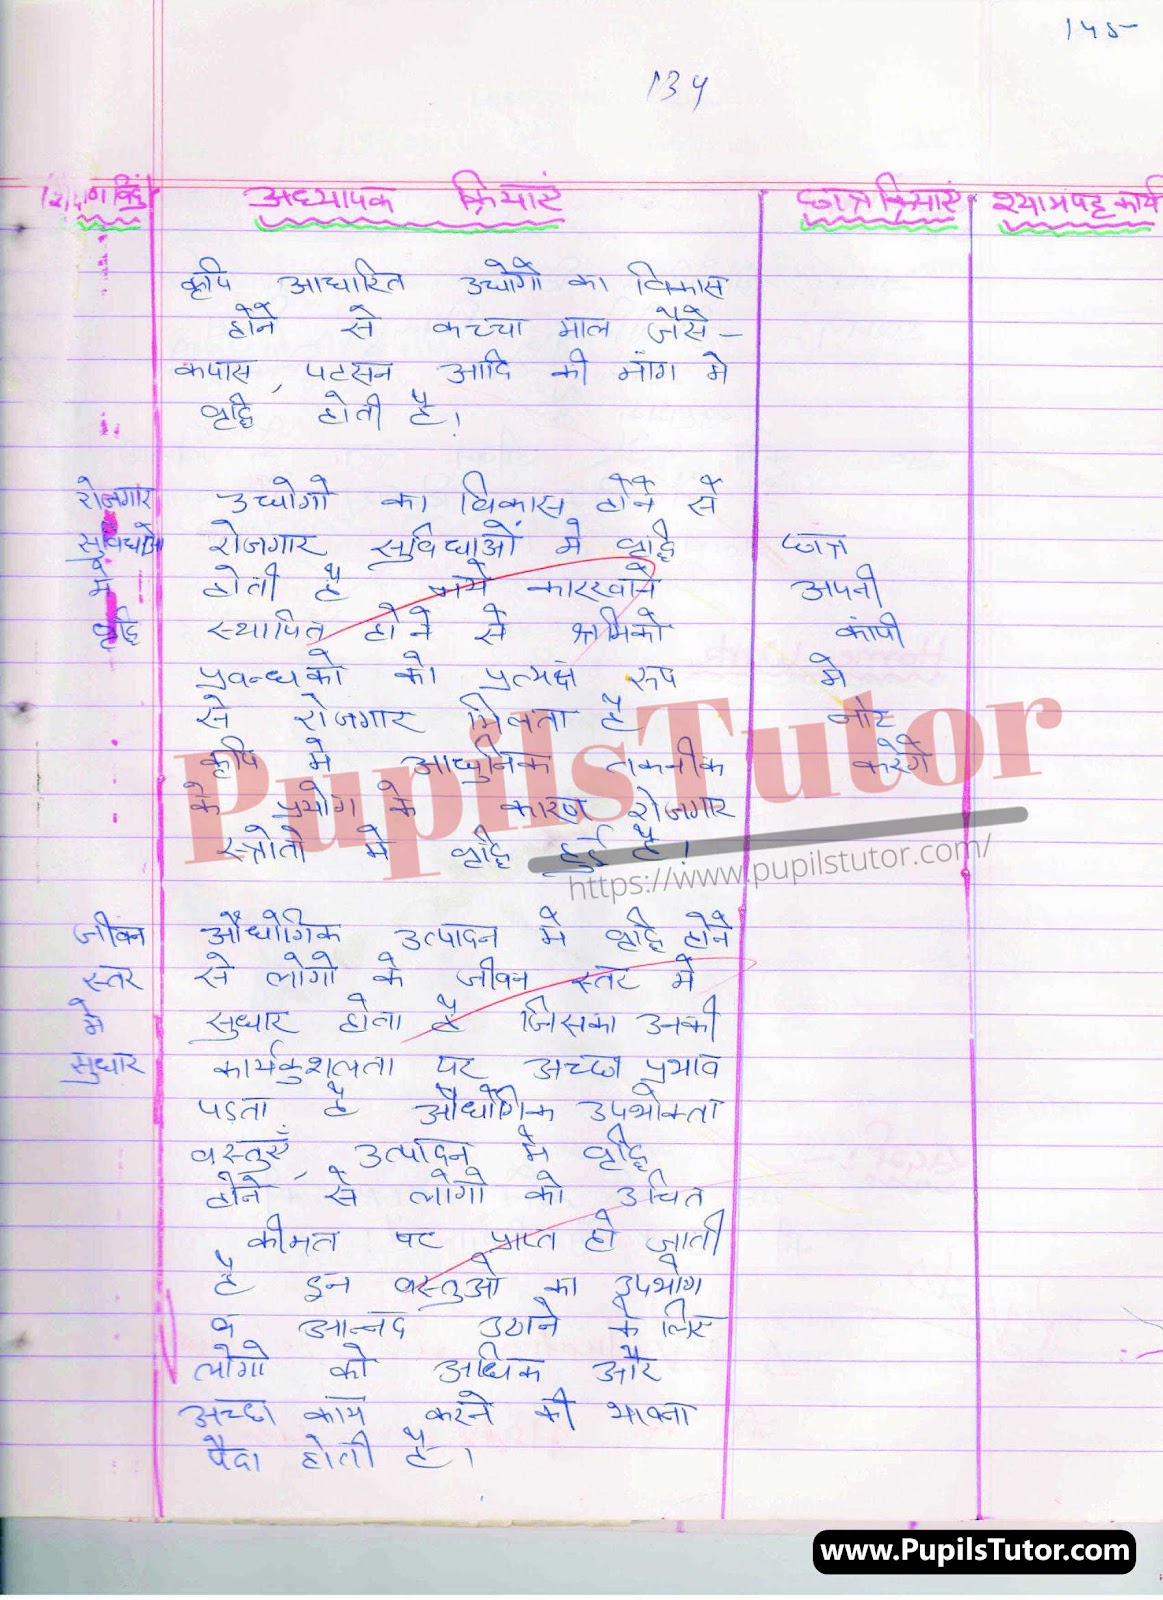 145
134
शिक्षण बिंदु अध्यापक क्रियाएं छात्र क्रियाएं श्यामपट्ट कार्य
कृषि आधारित उद्योगों का विकास
होने से कच्चा माल जैसे -
कपास, पटसन आदि की मांग मे
वृद्धि होती है।
रोजगार उद्योगो का विकास होने से
सुविधाओ रोजगार सुविधाओं मे वृद्धि छात्र
मे होती है नये कारखाने अपनी
वृद्धि स्थापित होने से श्रमिको कांपी
प्रवन्धको को प्रत्यक्ष रुप मे
से रोजगार मिलता है नोट
कृषि मे आधुनिक तकनीक करेगें
के प्रयोग के कारण रोजगार
स्त्रोतो मे वृद्धि हुई है।
PupilsTutor
https://www.pupilstutor.com/
जीवन औधोगिक उत्पादन मे वृद्धि होने
स्तर से लोगो के जीवन स्तर मे
मे सुधार होता है जिसका उनकी
सुधार कार्यकुशलता पर अच्छा प्रभाव
पड़ता है औधोगिक उपभोक्ता
वस्तुएँ उत्पादन मे वृद्धि
होने से लोगो को उचित
कीमत पर प्राप्त हो जाती
है इन वस्तुओ का उपभोग
व आन्नद उठाने के लिए
लोगो को अधिक और
अच्छा कार्य करने की भावना
पैदा होती है।
www.PupilsTutor.com